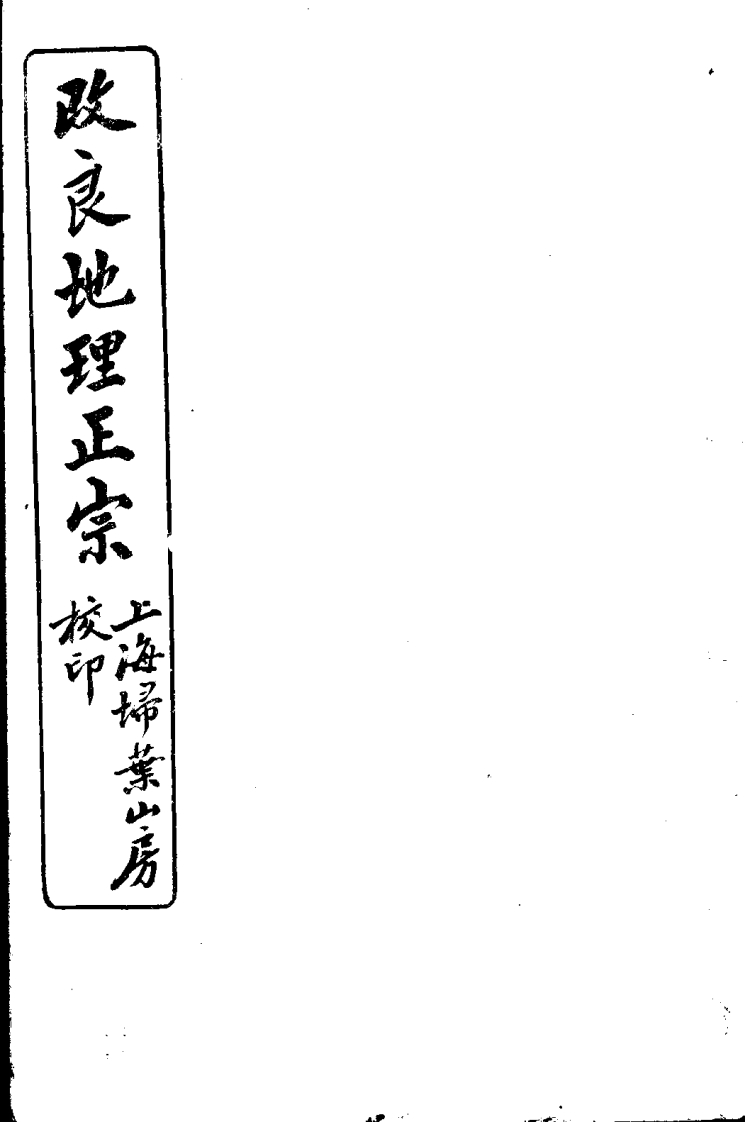 改良地理正宗
上海埽葉山房
校印